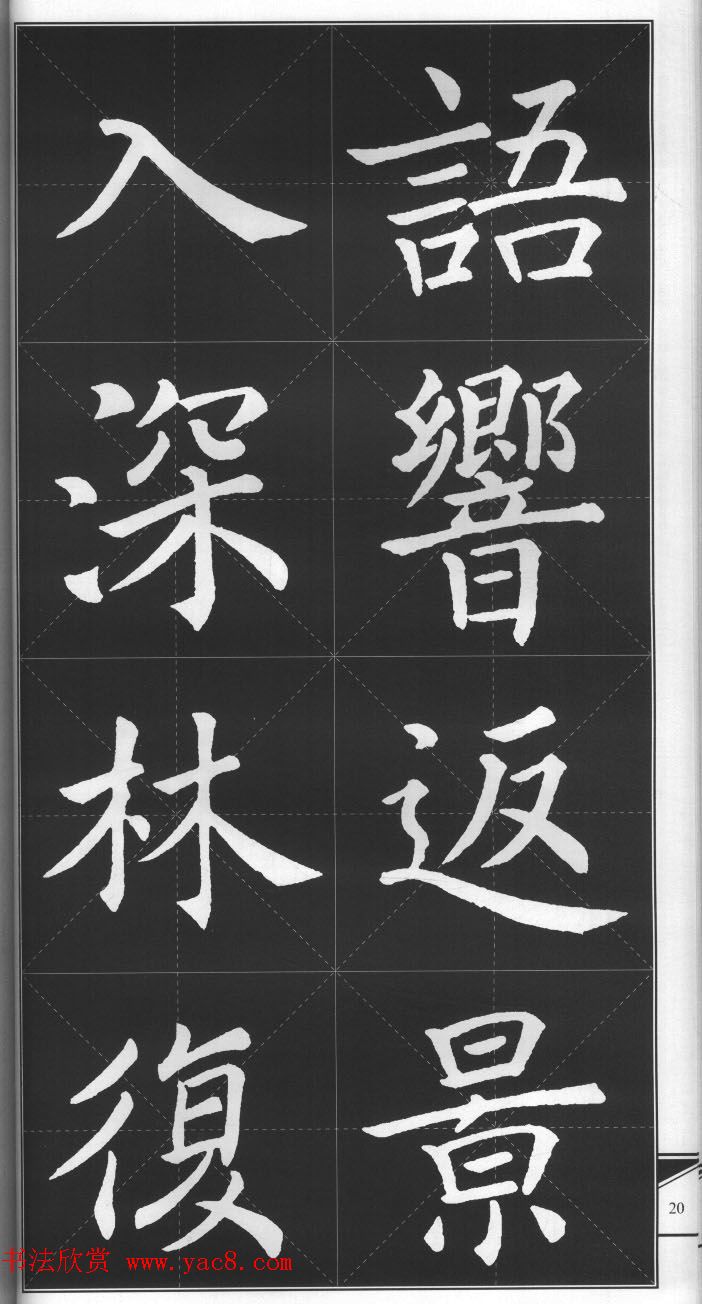 語響返景
入深林復
20
书法欣赏 www.yac8.com